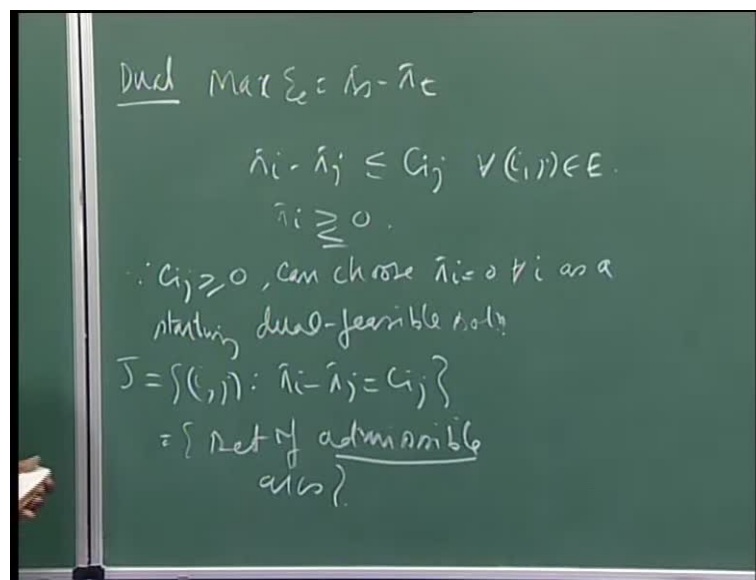 Dual Max ξ = π̄s - π̄t
π̄i - π̄j ≤ Cij ∀(i,j)∈E.
π̄i ≷ 0.
∵ Cij ≥ 0, can choose π̄i = 0 ∀ i as a
starting dual-feasible soln
J = {(i,j): π̄i - π̄j = Cij}
= { set of admissible
arcs}.